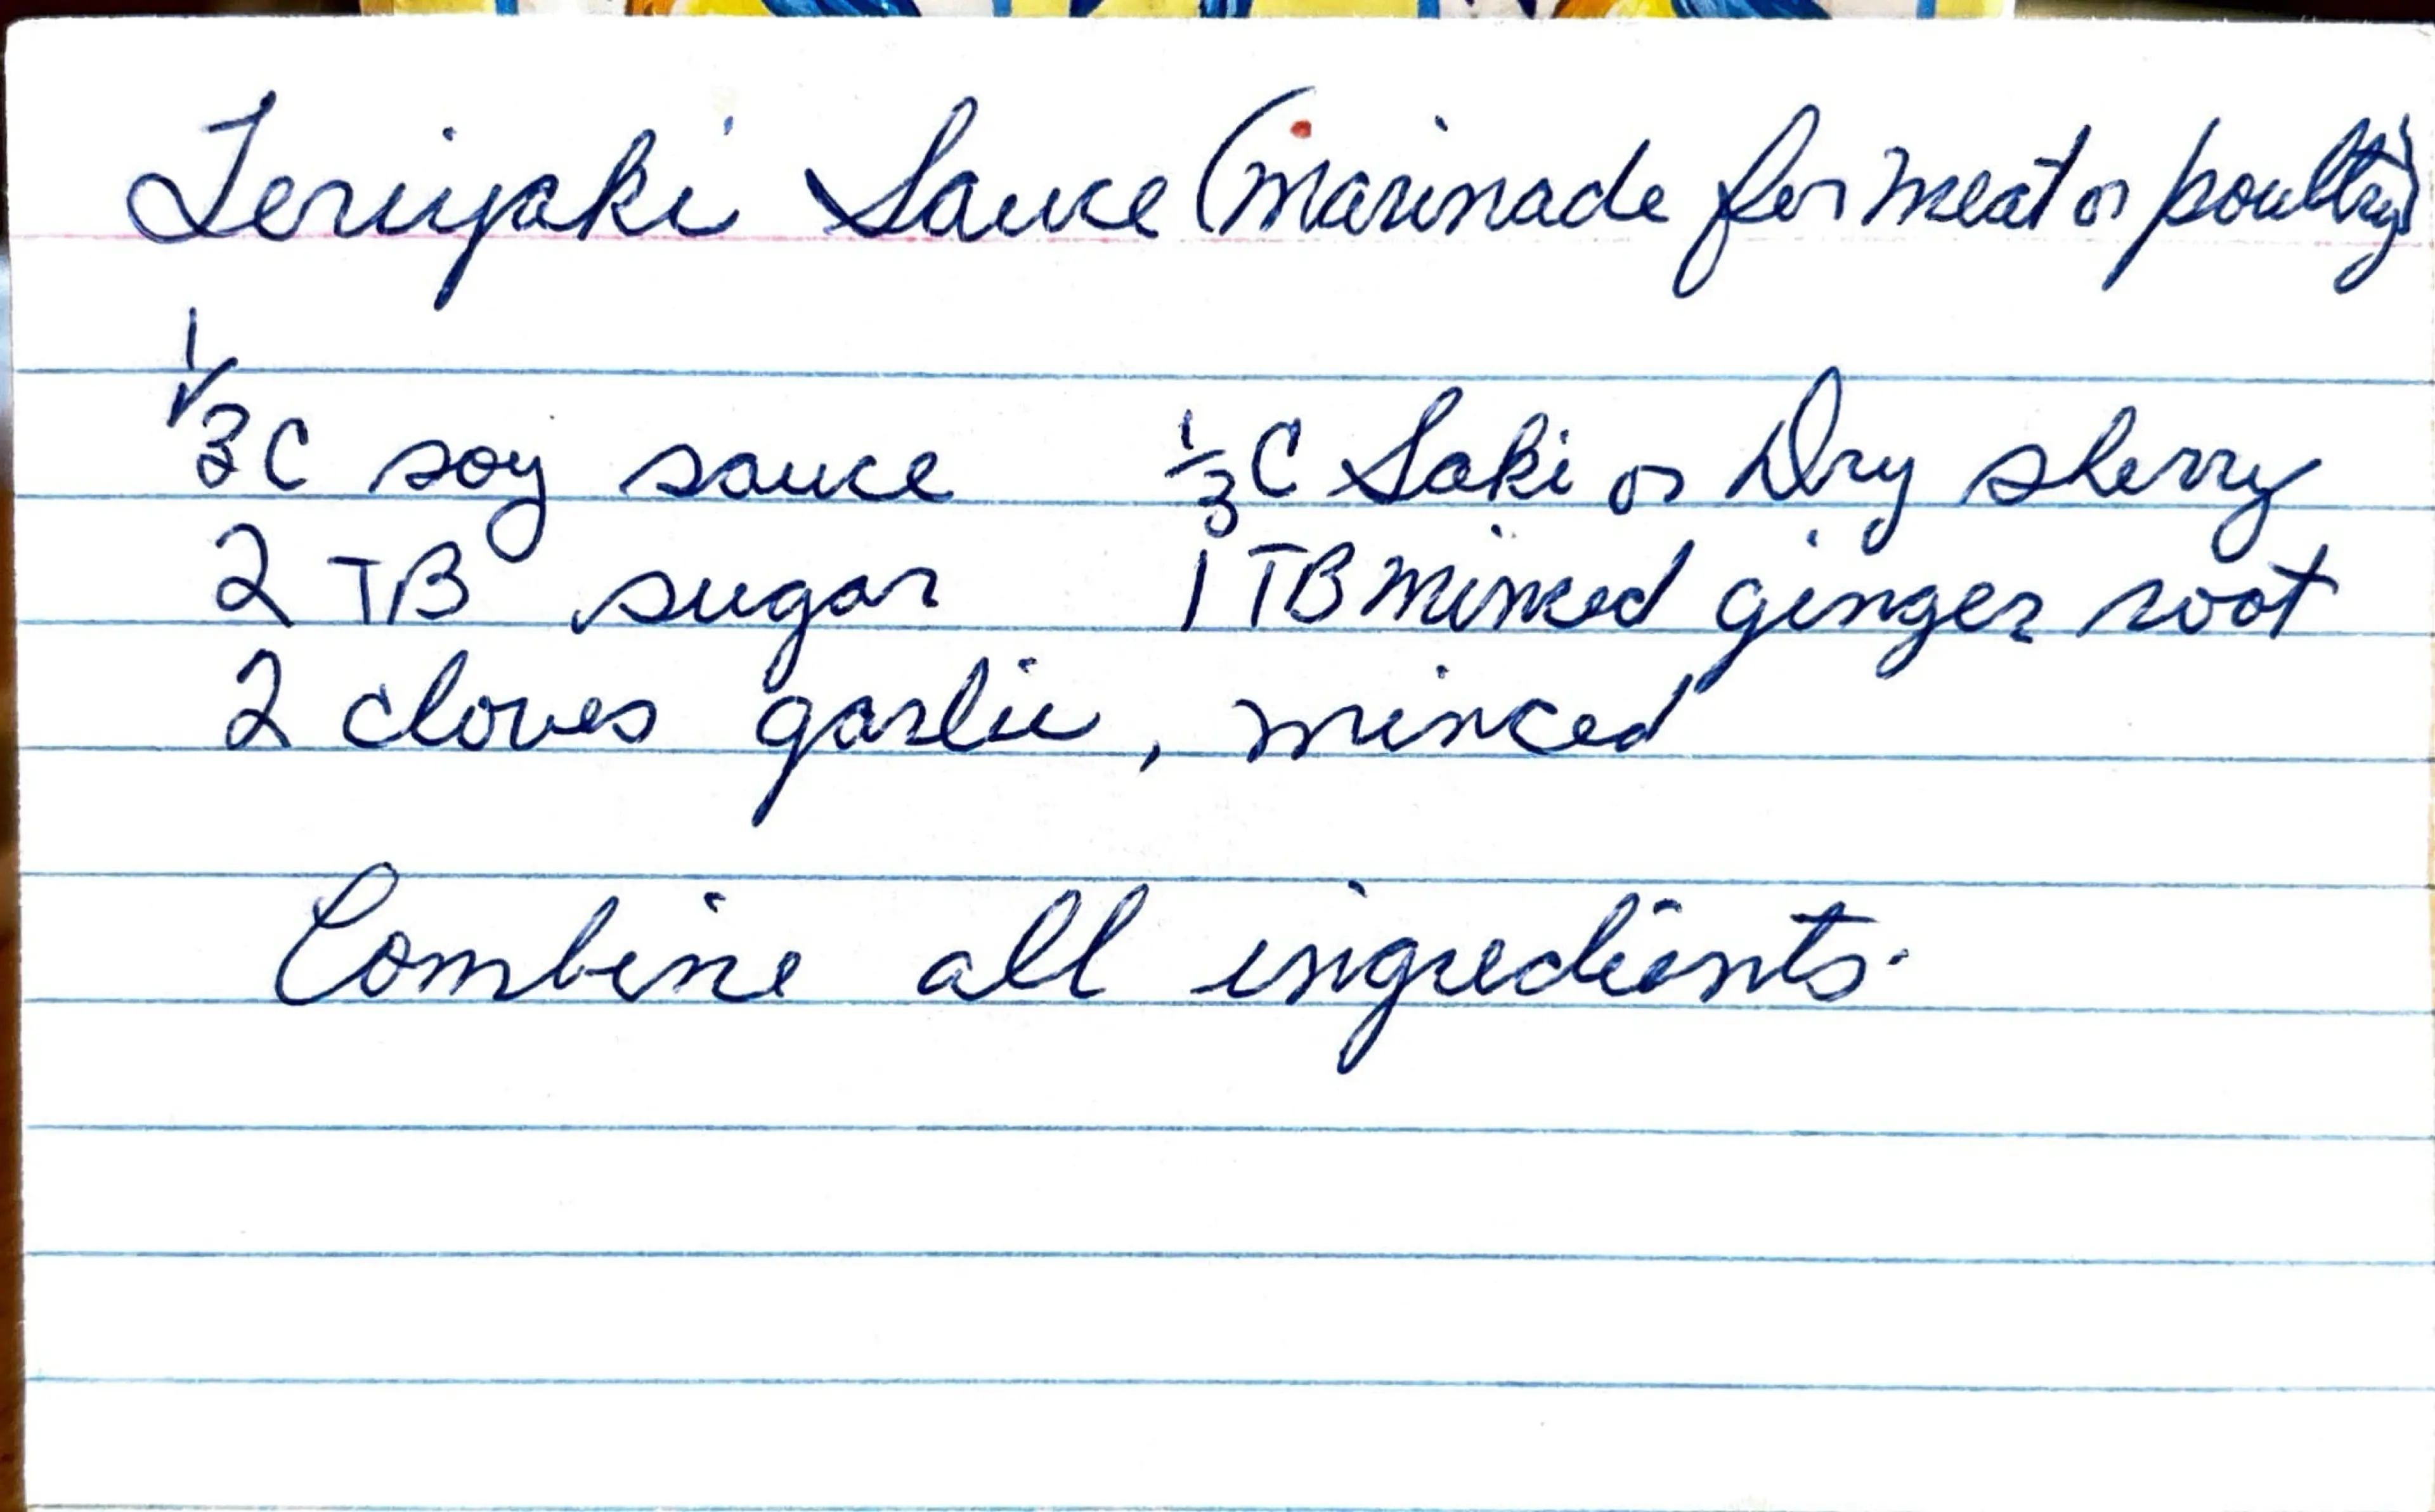 Teriyaki Sauce (marinade for meat or poultry)
1/3 C soy sauce 1/3 C Saki or Dry sherry
2 TB sugar 1 TB minced ginger root
2 cloves garlic, minced
Combine all ingredients.